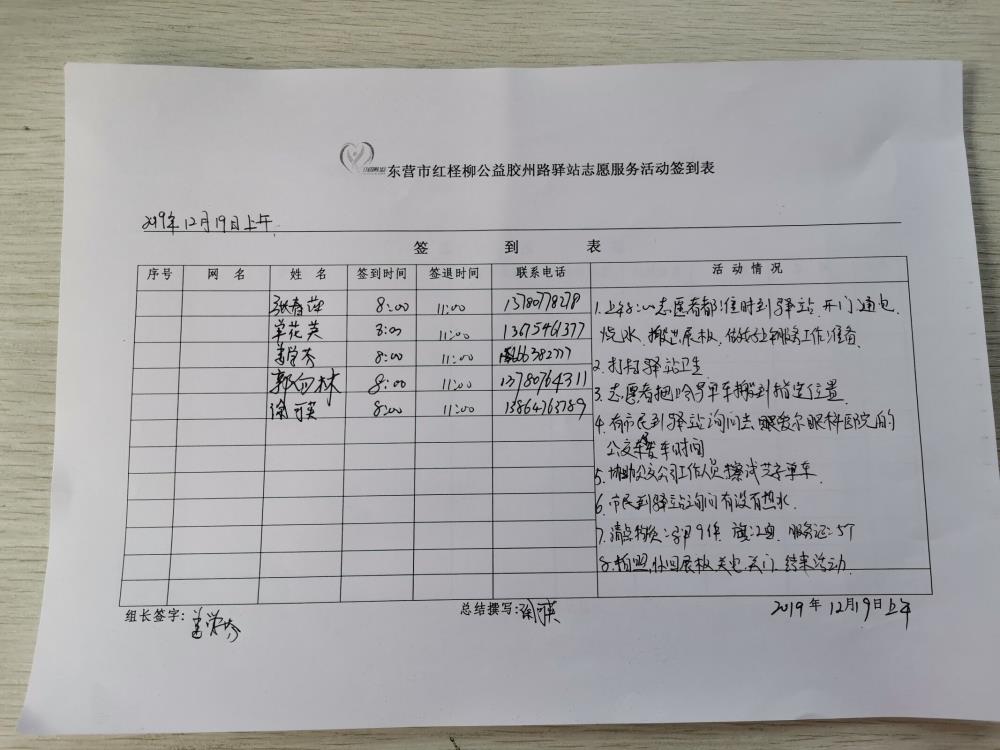 东营市红柽柳公益胶州路驿站志愿服务活动签到表
2019年12月19日上午
签 到 表
序号 网 名 姓 名 签到时间 签退时间 联系电话 活 动 情 况
张春萍 8:00 11:00 13780778278
单花美 8:00 11:00 13675461377
8:00 11:00
郭 林 8:00 11:00 13780764311
徐 英 8:00 11:00 13864763789
1.上午8:00志愿者都准时到驿站.开门通电.
烧水.搬出展板.做好上午服务工作准备.
2.打扫驿站卫生
3.志愿者把 单车搬到指定位置.
4.有市民到驿站询问去 爱尔眼科医院的
公交车发车时间
5.协助公交公司工作人员擦试 单车.
6.市民到驿站询问有没有热水.
7.清点物资: 9件 旗:2面. 服务证:5个
8.拍照,收回展板.关电.关门.结束活动.
组长签字: 总结撰写:徐 英 2019年12月19日上午